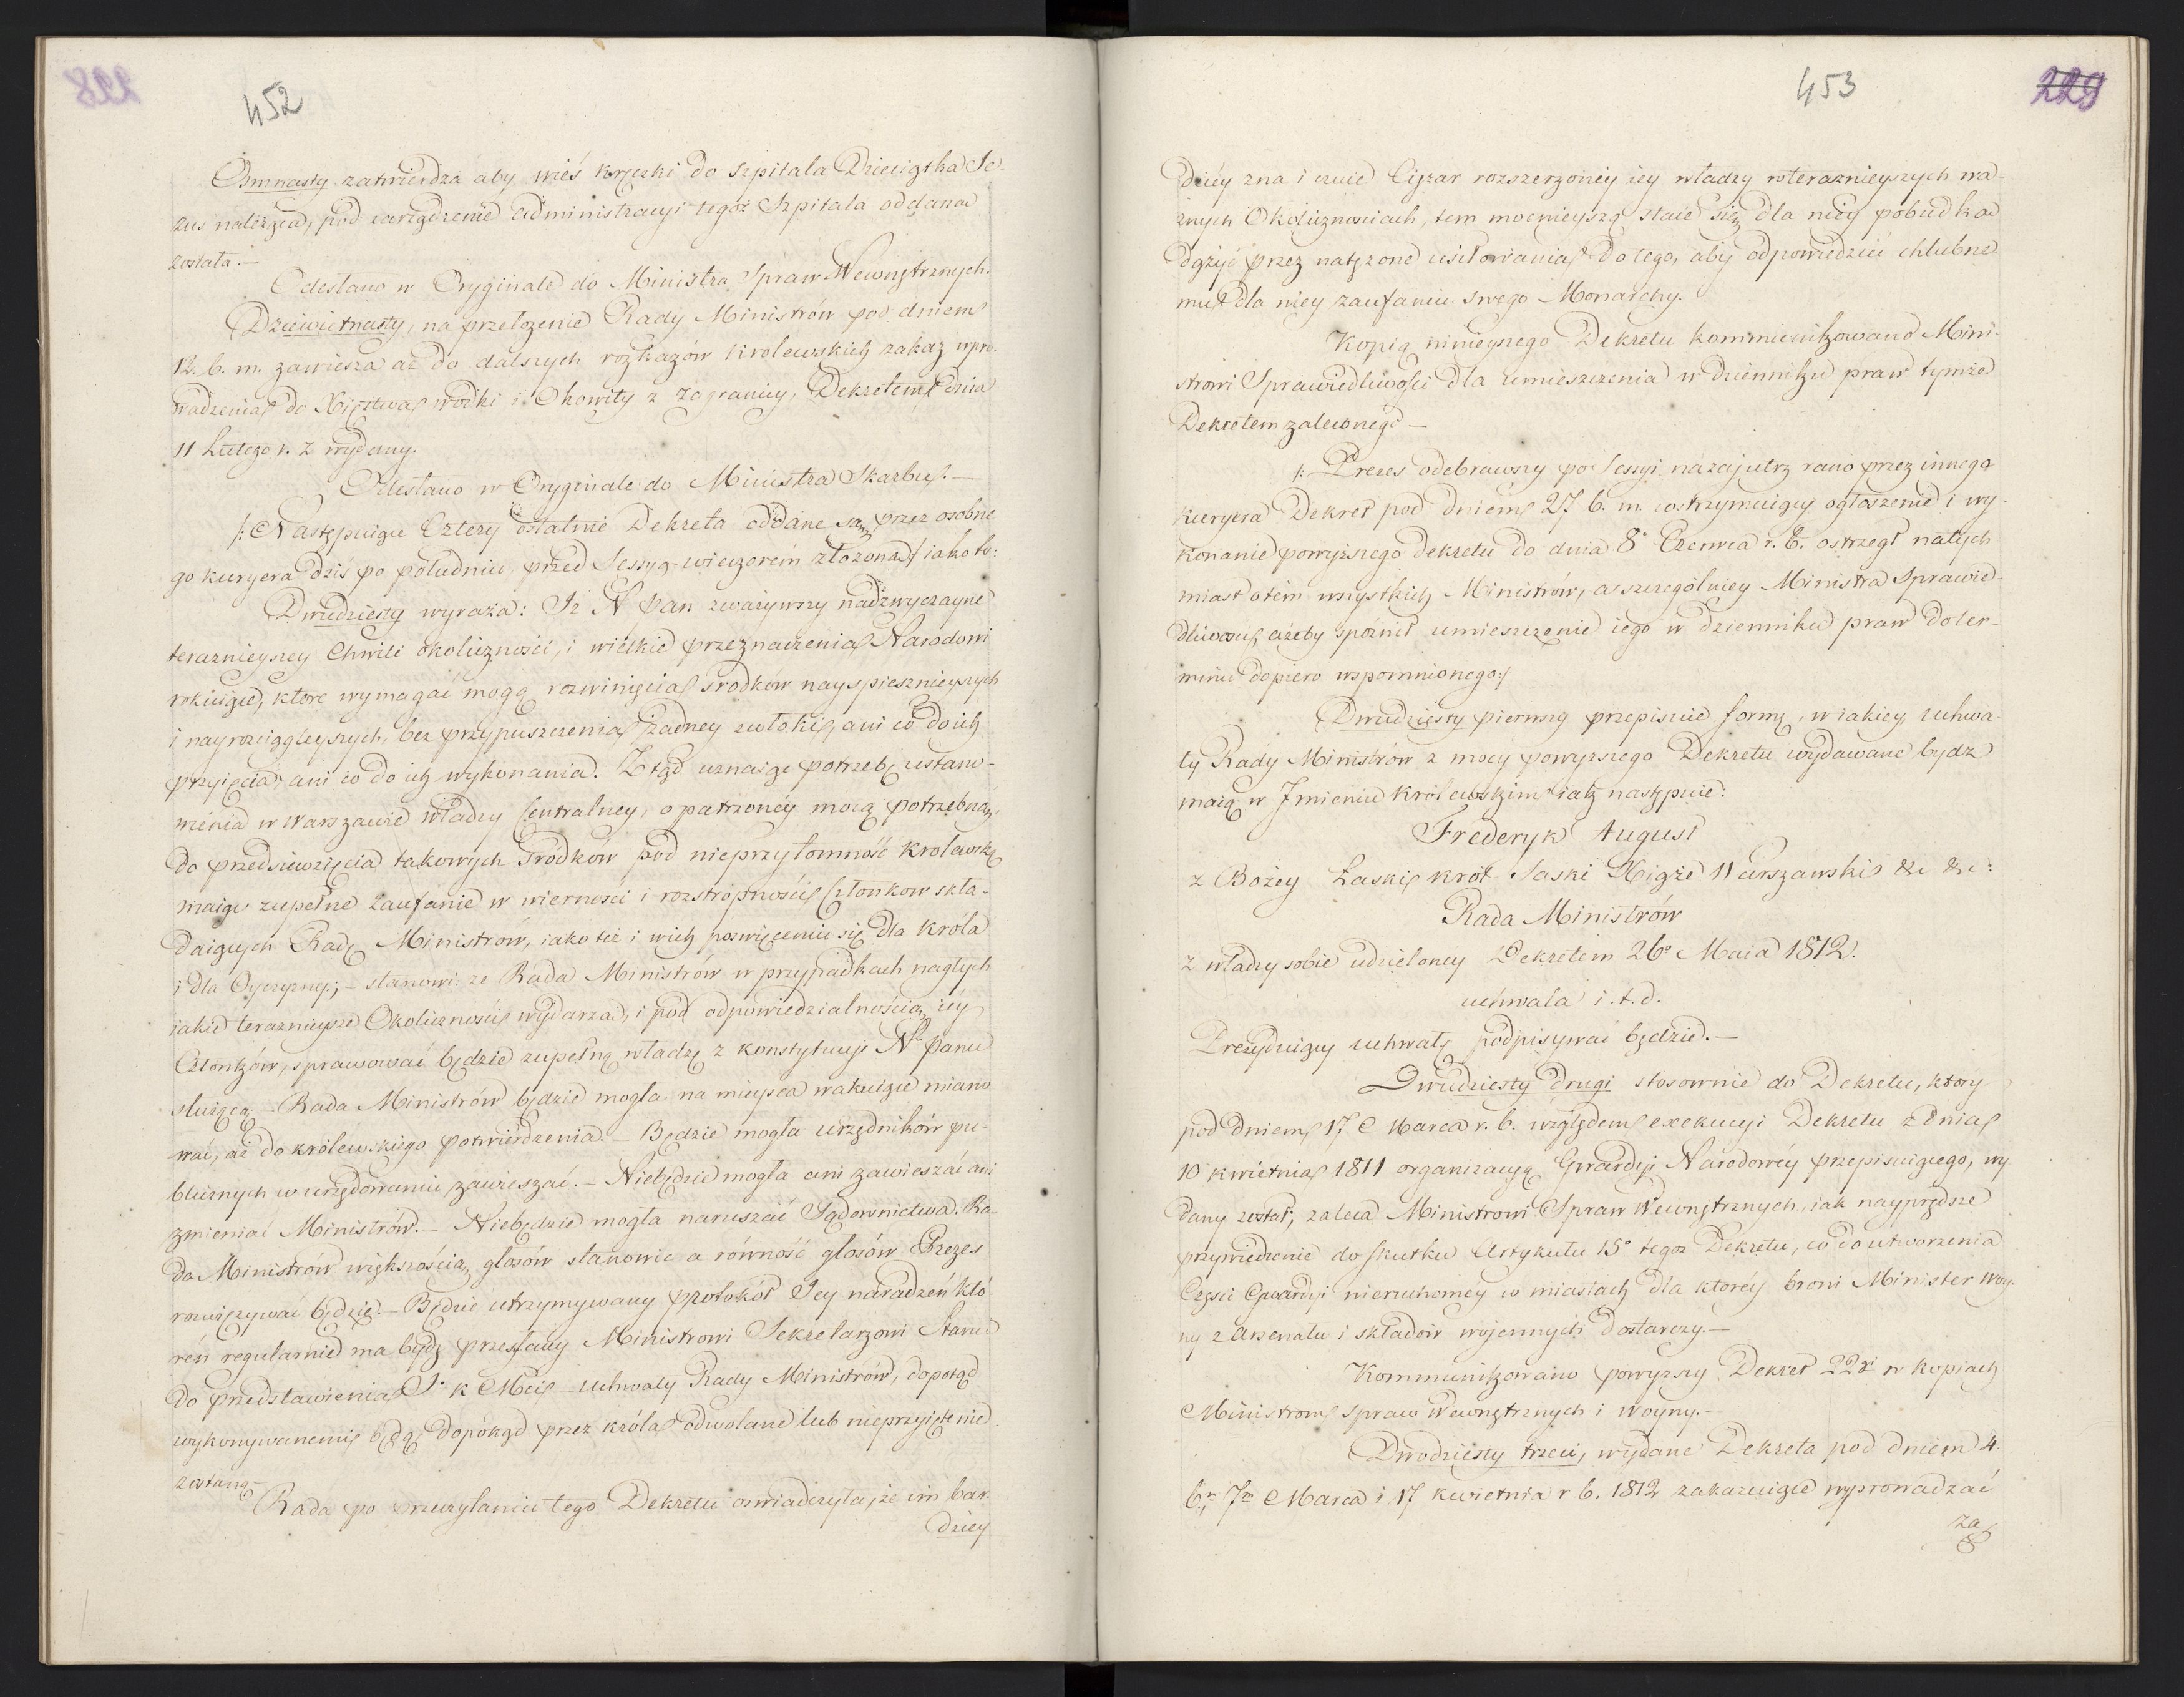 452
Osmnasty zatwierdza aby wieś Kręczki do Szpitala Dzieciątka Je-
zus należąca, pod zarządzenie Administracyi tegoż Szpitala oddana
została.—
Odesłano w Oryginale do Ministra Spraw Wewnętrznych.
Dziewiętnasty, na przełożenie Rady Ministrów pod dniem
12. b. m. zawiesza aż do dalszych rozkazów Królewskich zakaz wpro-
wadzenia do Xięstwa wódki i Okowity z zagranicy, Dekretem dnia
11 Lutego r. z wydany.
Odesłano w Oryginale do Ministra Skarbu.—
/: Następuiące Cztery ostatnie Dekreta oddane są przez osobne
go kuryera dziś po południu, przed Sessyą wieczorem złożoną :/ iako to:
Dwudziesty wyraża: Iż N Pan zważywszy nadzwyczayne
teraznieyszey Chwili okoliczności, i wielkie przeznaczenia Narodowi
rokuiące, które wymagać mogą rozwinięcia srodków nayspiesznieyszych
i nayrozciągleyszych, bez przypuszczenia żadney zwłoki, ani co do ich
przyięcia, ani co do ich wykonania. Ztąd uznaiąc potrzebę ustano-
wienia w Warszawie władzy Centralney, opatrzoney mocą potrzebną,
do przedsiewzięcia takowych srodków pod nieprzytomność Królewską
maiąc zupełne zaufanie w wierności i rozstropności Członkow skła-
daiących Radę Ministrów, iako też i wich poswięceniu się dla Króla
i dla Oyczyzny; — stanowi: że Rada Ministrów w przypadkach nagłych
iakie teraznieysze Okoliczności wydarzać, i pod odpowiedzialnością iey
Członków, sprawować będzie zupełną władzę z konstytucyi N. Panu
służącą. Rada Ministrów będzie mogła na mieysca wakuiące miano
wać, aż do królewskiego potwierdzenia. — Będzie mogła urzędników pu-
blicznych w urzędowaniu zawieszać. — Niebędzie mogła ani zawieszać ani
zmieniać Ministrów. — Niebędzie mogła naruszać Sądownictwa. Ra-
da Ministrów większością głosów stanowić a równość głosów Prezes
rozwięzywać będzie. — Będzie utrzymywany protokół Jey naradzeń któ-
ren regularnie ma bydź przesłany Ministrowi Sekretarzowi Stanu
do przedstawienia J. K Mci — Uchwały Rady Ministrów, dopotąd
wykonywanemi będą, dopókąd przez króla odwołane lub nieprzyięte nie
zostaną.—
Rada po przeczytaniu tego Dekretu oswiadczyła, że im bar-
dziey
453
229
dziey zna i czuie Ciężar rozszerzoney iey władzy w teraznieyszych wa-
żnych Okolicznosciach, tem mocnieyszą staie się dla niey pobudka
dążyć przez natężone usiłowania do tego, aby odpowiedzieć chlubne
mu dla niey zaufaniu swego Monarchy.
Kopią ninieyszego Dekretu kommunikowano Mini-
strowi Sprawiedliwości dla umieszczenia w dzienniku praw tymże
Dekretem zaleconego —
/: Prezes odebrawszy po Sessyi nazajutrz rano przez innego
kuryera Dekret pod dniem 27. b. m. wstrzymuiący ogłoszenie i wy-
konanie powyższego Dekretu do dnia 8º Czerwca r. b. ostrzegł natych
miast o tem wszystkich Ministrów, a szczególniey Ministra Sprawie-
dliwości, ażeby spóznił umieszczenie iego w dzienniku praw do ter-
minu dopiero wspomnionego :/
Dwudziesty pierwszy przepisuie formę, w iakiey uchwa-
ły Rady Ministrów z mocy powyższego Dekretu wydawane bydz
maią w Jmieniu Królewskim iak następuie:
Frederyk August
z Bożey Łaski Król Saski Xiąże Warszawski &c &c:
Rada Ministrów
z władzy sobie udzieloney Dekretem 26º Maia 1812.
uchwala i. t. d.
Prezyduiący uchwałę podpisywać będzie.—
Dwudziesty drugi stosownie do Dekretu, ktory
pod dniem 17 Marca r. b. względem exekucyi Dekretu z dnia
10 kwietnia 1811 organizacyą Gwardyi Narodowéy przepisuiącego, wy
dany został, zaleca Ministrowi Spraw Wewnętrznych iak nayprędsze
przywiedzenie do skutku Artykułu 15º tegoż Dekretu, co do utworzenia
Części Gwardyi nieruchomey w miastach dla ktoréy broni Minister Woy-
ny z Arsenału i składow wojennych dostarczy.—
Kommunikowano powyższy Dekret 22gi w kopiach
Ministrom spraw Wewnętrznych i Woyny.—
Dwódziesty trzeci, wydane Dekreta pod dniem 4.
6m, 7m Marca i 17 kwietnia r b. 1812 zakazuiące wyprowadzać
za